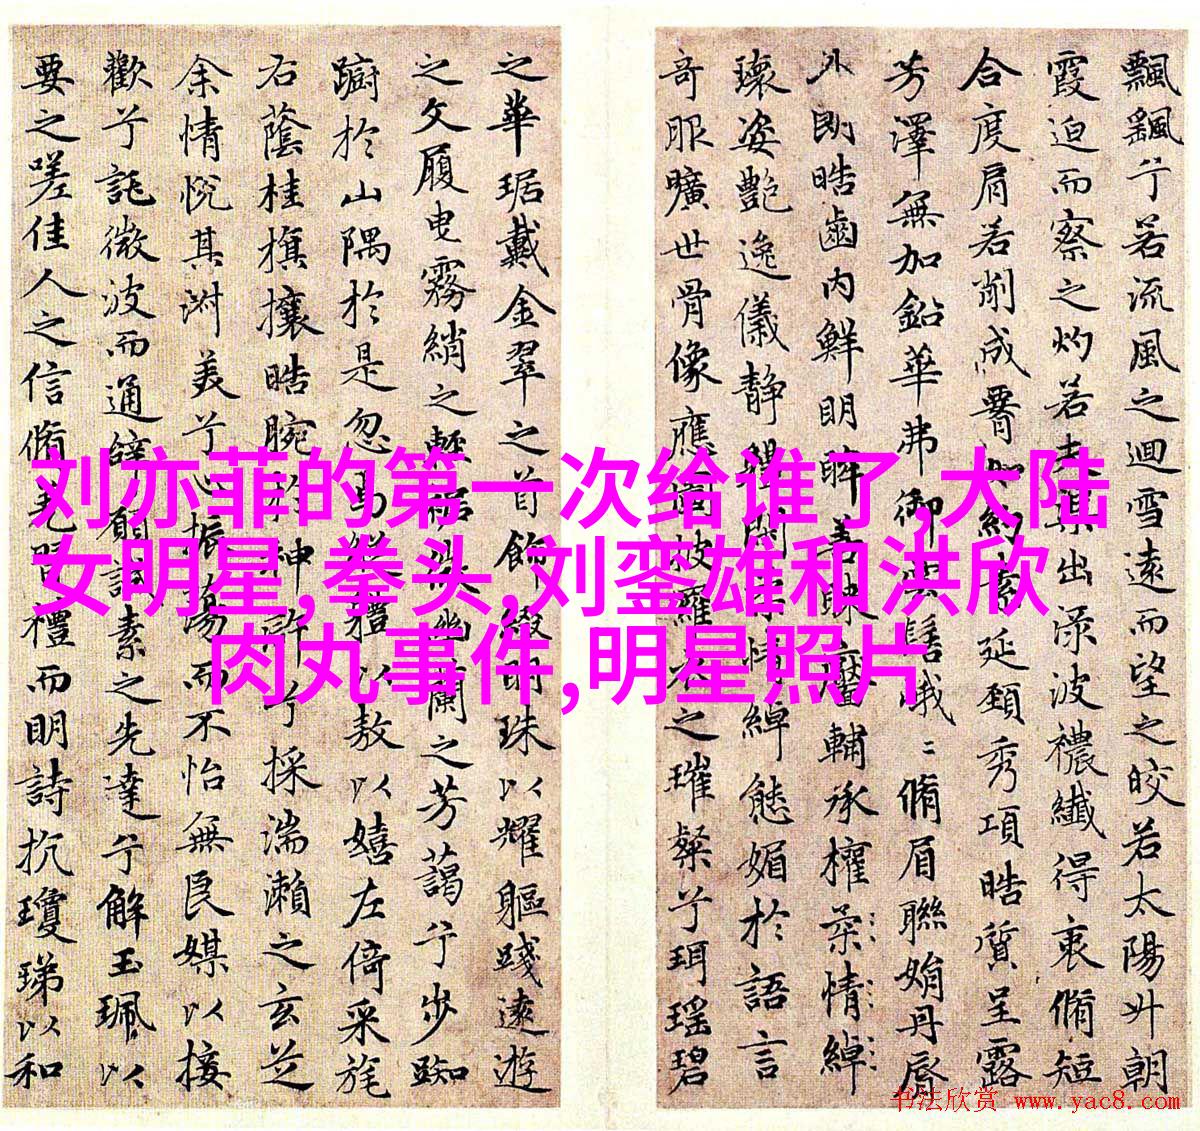 飄飖兮若流風之迴雪遠而望之皎若太陽升朝
霞迫而察之灼若出淥波襛纖得衷脩短
合度肩若削成約素延頸秀項皓質呈露
芳澤無加鉛華弗御雲髻峨ミ脩眉聯娟丹脣
外朗皓齒内鮮明眸善睞靨輔承權柔情綽
瓌姿艷逸儀靜體閑情綽態媚於語言
奇服曠世骨像應圖披羅衣之璀粲兮珥瑤碧
之華琚戴金翠之首飾綴明珠以耀軀踐遠遊
之文履曳霧綃之輕裾幽蘭之芳藹兮步踟
躕於山隅於是忽焉縱體以敖以嬉左倚采旄
右蔭桂旗攘皓腕於神滸兮採湍瀨之玄芝
余情悅其淑美兮心振蕩而不怡無良媒以接
歡兮託微波而通辭願誠素之先達兮解玉珮以
要之嗟佳人之信脩羌習禮而明詩抗瓊珶以和
刘亦菲的第一次给谁了,大陆
女明星,拳头,刘銮雄和洪欣
肉丸事件,明星照片
书法欣赏 www.yac8.com